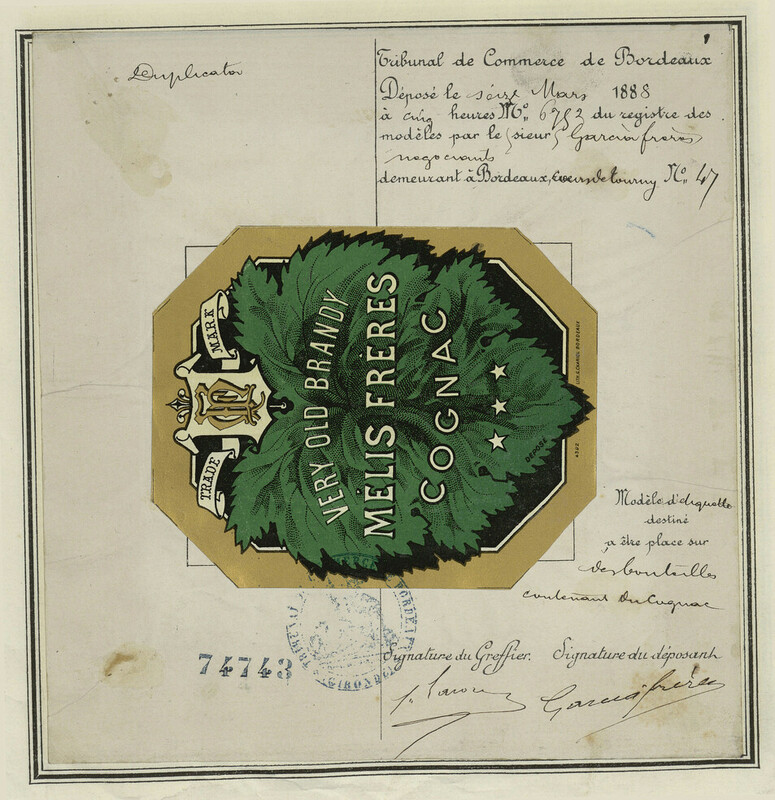 Duplicata
Tribunal de Commerce de Bordeaux
Déposé le seize Mars 1888
à cinq heures Nº 6752 du registre des
modèles par le sieurs Garcia frères
negociants
demeurant à Bordeaux, cours de tourny Nº 47
TRADE MARK
VERY OLD BRANDY
MÉLIS FRÈRES
COGNAC
DÉPOSÉ
BORDEAUX
Modèle d'étiquette
destiné
a être place sur
des bouteilles
contenant du Cognac
TRIBUNAL
COMMERCE
BORDEAUX
(GIRONDE)
74743
Signature du Greffier. Signature du déposant
Garcia frères